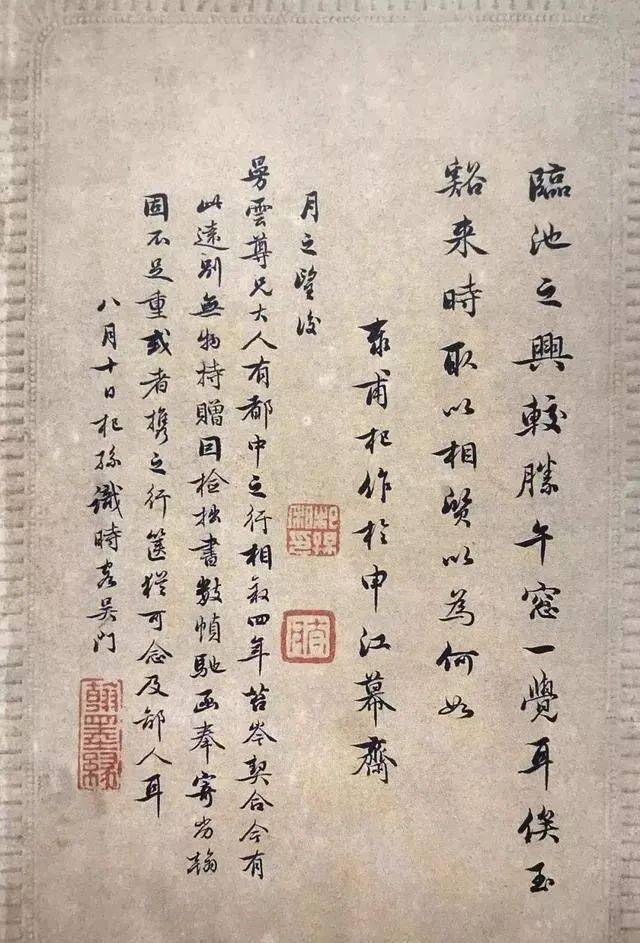 臨池之興較勝午窓一覺耳俟玉
谿来時取以相質以為何如
泰甫杞作於申江幕齋
月之望後
曼雲尊兄大人有都中之行相敘四年苔岑契合今有
此遠別無物持贈因檢拙書數幀馳函奉寄劣翰
固不足重或者携之行篋猶可念及鄙人耳
八月十日杞孫識時客吳門
翰墨緣